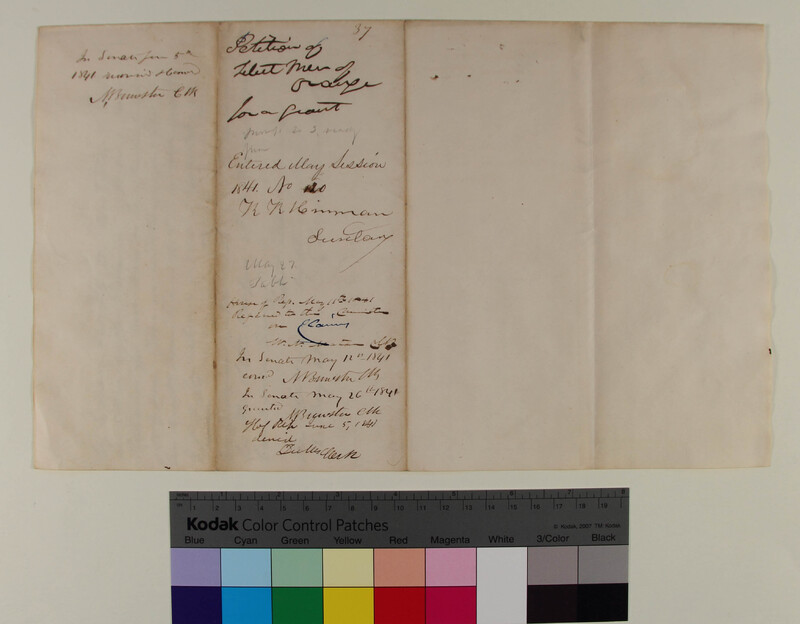 In Senate June 5th
1841 receded & concd
N Brewster Clk
37
Petition of
Select Men of
Orange
for a grant
Entered May Session
1841. No 120
R R Hinman
Secretary
May 27
Table
House of Rep. May 11th 1841
Referred to the Committee
on Claims
Clk
In Senate May 12th 1841
concd N Brewster Clk
In Senate May 26th 1841
granted
N Brewster Clk
H of Rep June 5, 1841
denied
Clerk
Kodak Color Control Patches
© Kodak, 2007 TM: Kodak
Blue Cyan Green Yellow Red Magenta White 3/Color Black